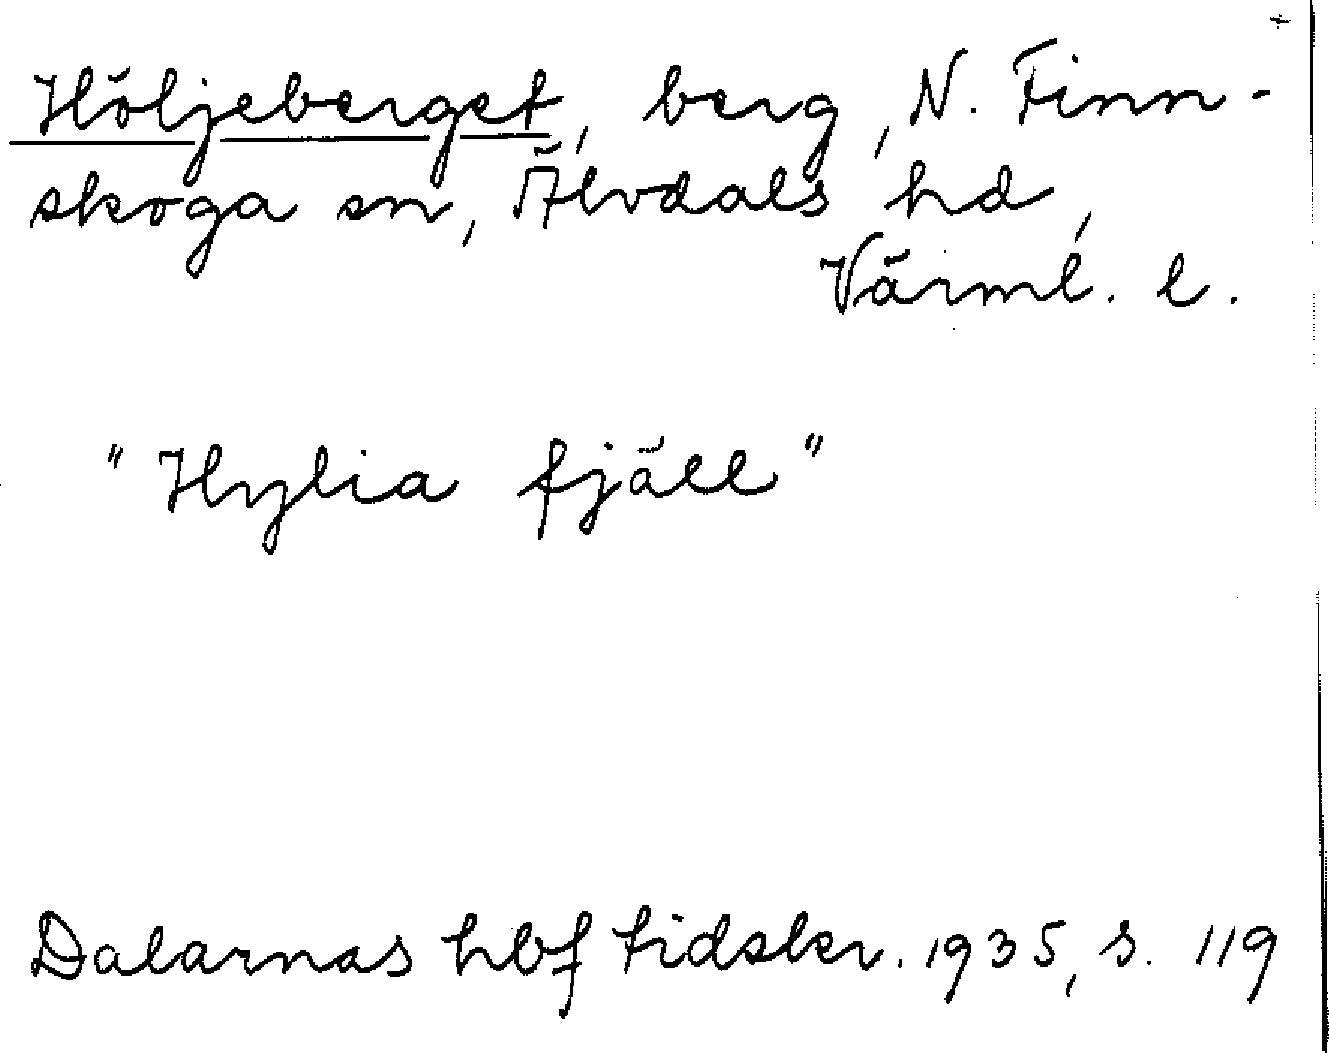 Höljeberget, berg, N. Finn-
skoga sn, Älvdals hd,
Värml. l.
"Hylia fjäll"
Dalarnas hbf tidskr. 1935, s. 119